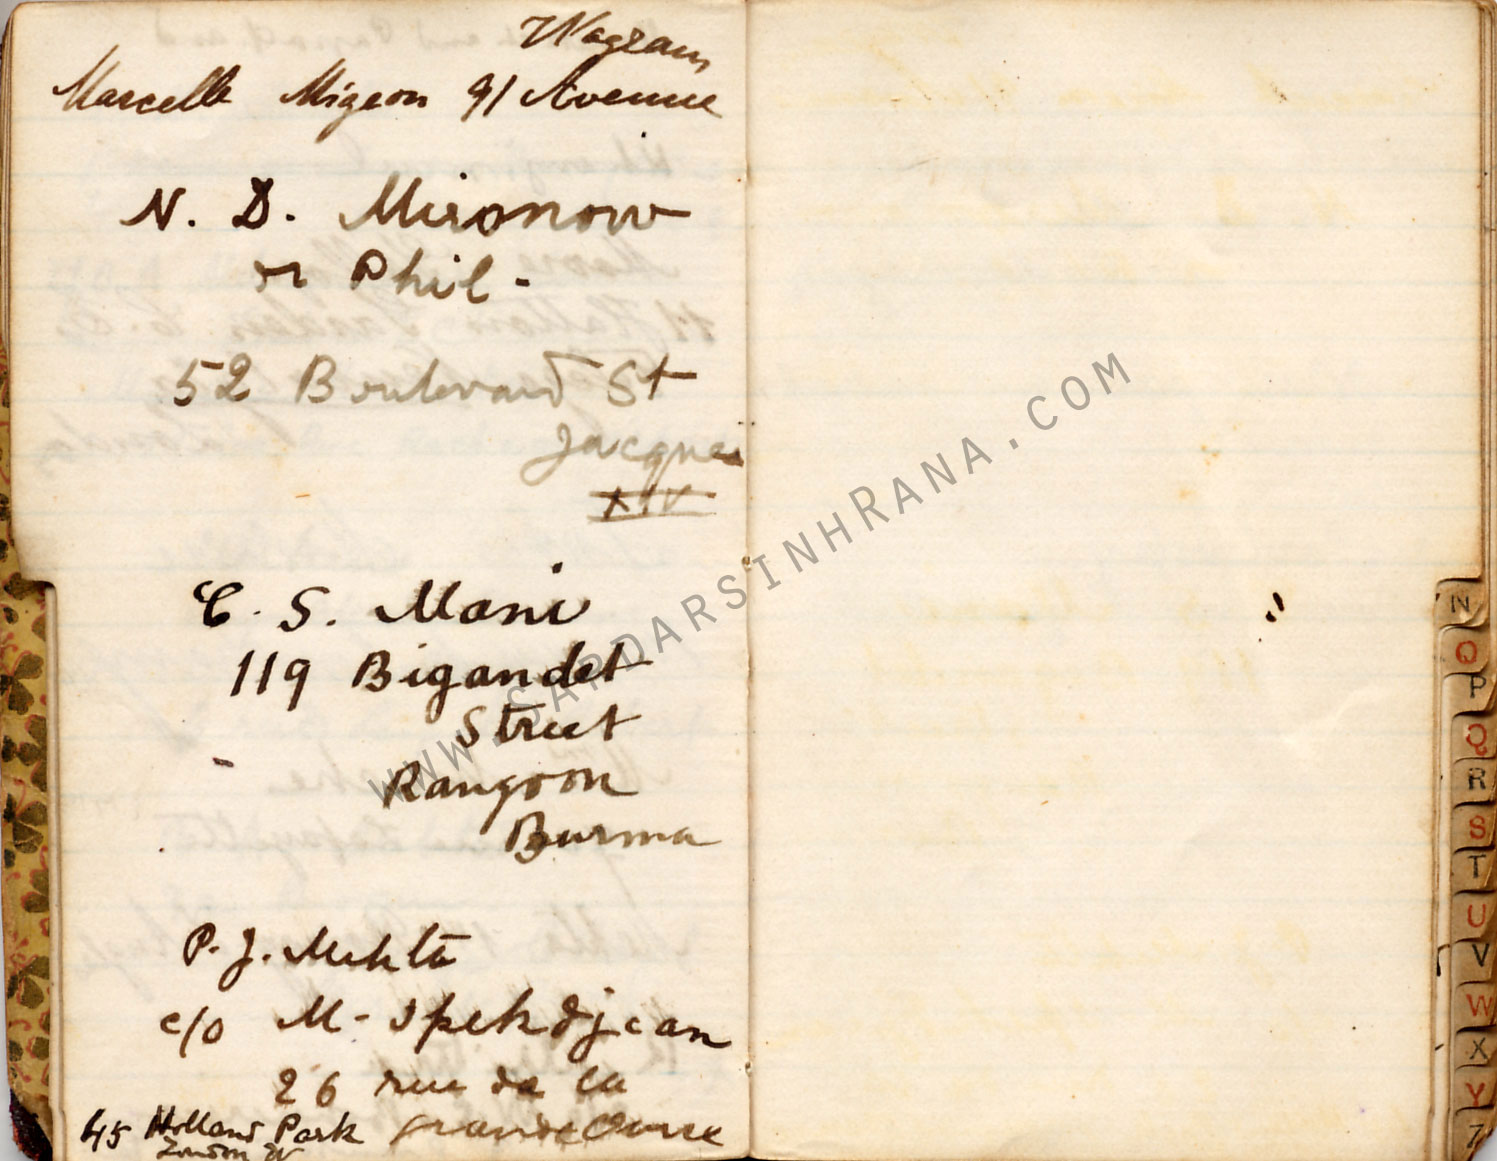 Wagram
Marcelle Migeon 91 Avenue
N. D. Mironow
or Phil -
52 Boulevard St
Jacques
XIV
C. S. Mani
119 Bigandet
Street
Rangoon
Burma
P. J. Mehta
c/o M- Ipekdjean
26 rue de la
Grande Ourse
45 Holland Park
London W
WWW.SARDARSINHRANA.COM
N
O
P
Q
R
S
T
U
V
W
X
Y
Z